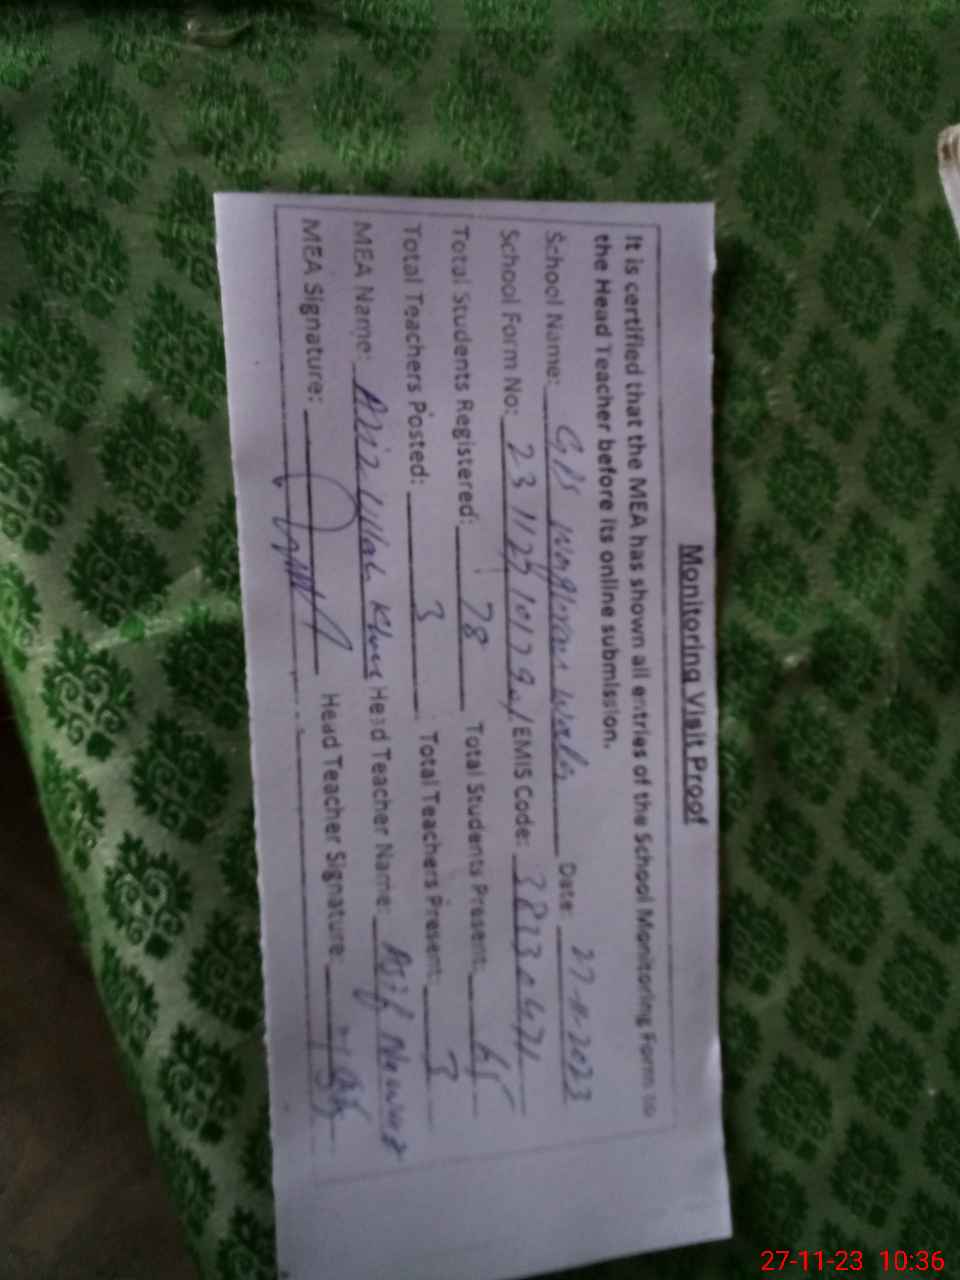 Monitoring Visit Proof
It is certified that the MEA has shown all entries of the School Monitoring Form to
the Head Teacher before its online submission.
School Name: Date: 27-11-2023
School Form No: EMIS Code:
Total Students Registered: 78 Total Students Present: 65
Total Teachers Posted: 3 Total Teachers Present: 3
MEA Name: Aziz Ullah Khan Head Teacher Name: Asif Nawaz
MEA Signature: Head Teacher Signature:
27-11-23 10:36